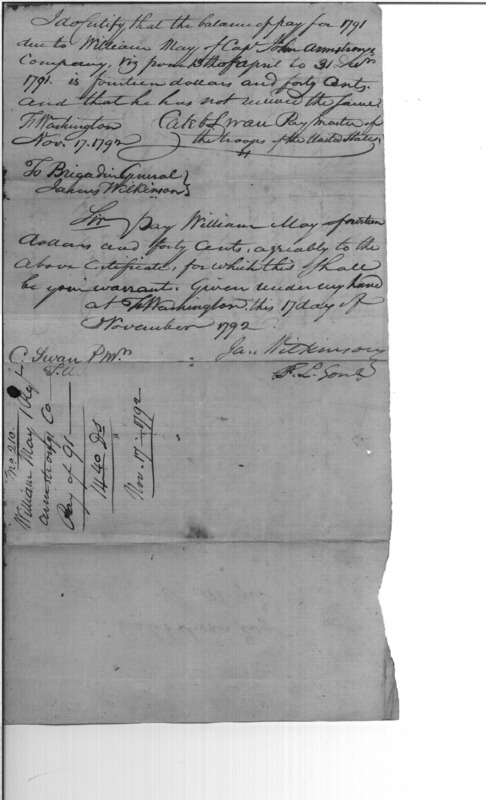 I do Certify that the balance of pay for 1791
due to William May of Capt John Armstrongs
Company, viz from 13th of April to 31 Decr
1791. is fourteen dollars and forty Cents.
and that he has not received the same
Ft Washington Caleb Swan Pay Master of
Nov. 17. 1792 the troops of the United States
To Brigadier General
James Wilkinson
Sir Pay William May fourteen
dollars and forty Cents, agreably to the
above Certificate, for which this shall
be your warrant. Given under my hand
at Ft Washington this 17 day of
November 1792
C. Swan P Mr Ja. Wilkinson
No 210.
William May
Armstrongs Co
Pay of 91
14.40 Ds
Nov. 17th 1792